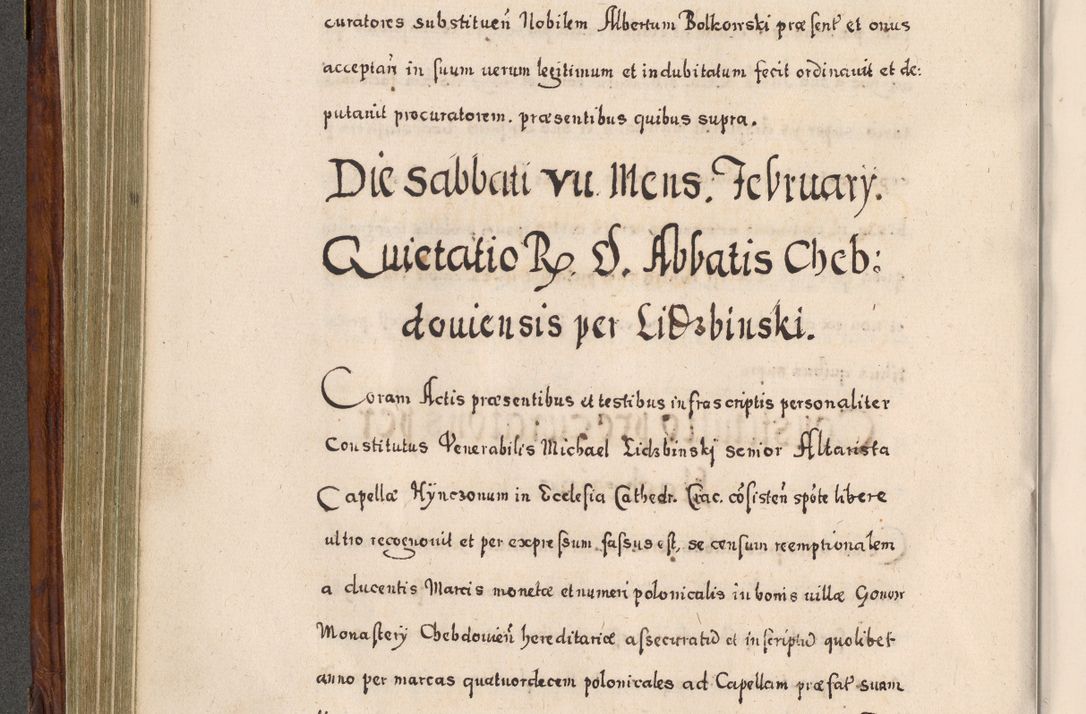 curatores substitueñ Nobilem Albertum Bolkowski præsent̃ et onus
acceptañ in suum uerum legitimum et indubitatum fecit ordinauit et de:
putauit procuratorem. præsentibus quibus supra.
Die Sabbati VII. Mens. February.
Quietatio R. D. Abbatis Cheb:
douiensis per Lidzbinski.
Coram Actis præsentibus et testibus infrascriptis personaliter
Constitutus Venerabilis Michael Lidzbinskÿ senior Altarista
Capellæ Hÿnczonum in Ecclesia Cathedr. Crac. cõsisteñ spõte libere
ultro recognouit et per expressum fassus est, se censum reemptionalem
a ducentis Marcis monetæ et numeri polonicalis in bonis uillæ Gonow
Monasterÿ Chebdouieñ hereditariæ assecuratũ et inscriptũ quolibet
anno per marcas quatuordecem polonicales ad Capellam præfat̃ suam